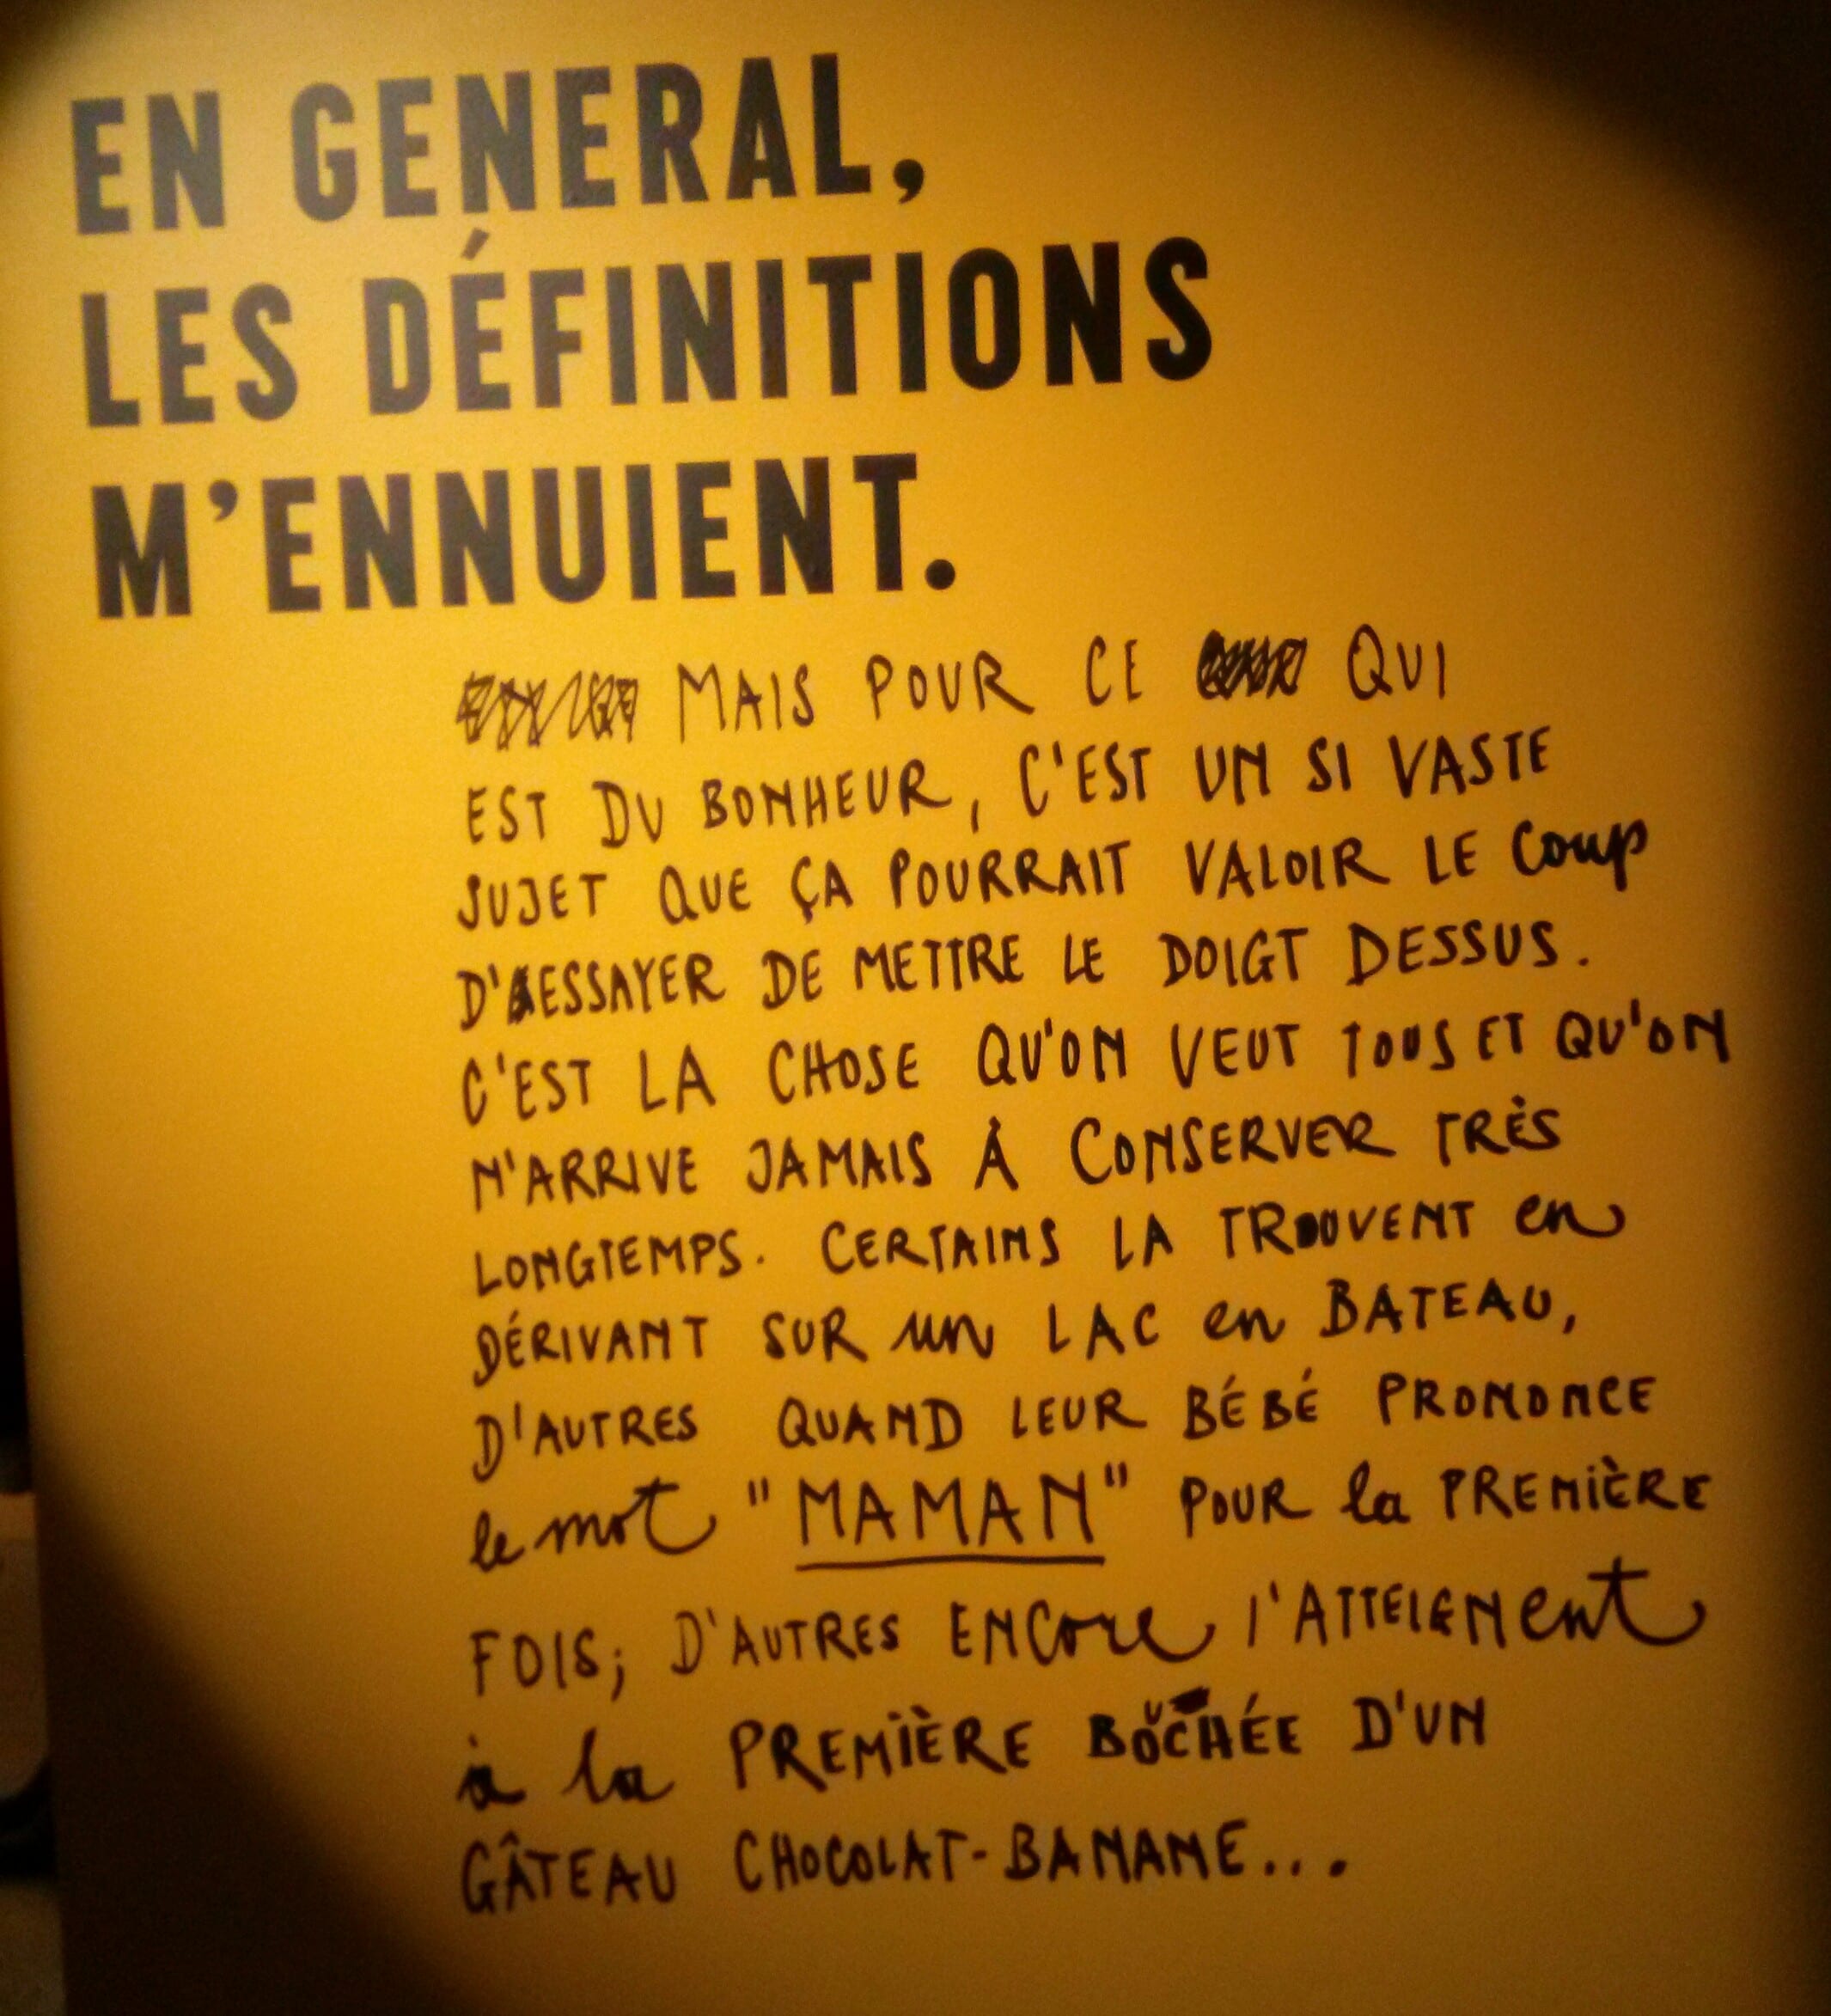 EN GENERAL,
LES DÉFINITIONS
M'ENNUIENT.
MAIS POUR CE QUI
EST DU BONHEUR, C'EST UN SI VASTE
SUJET QUE ÇA POURRAIT VALOIR LE Coup
D'ESSAYER DE METTRE LE DOIGT DESSUS.
C'EST LA CHOSE QU'ON VEUT TOUS ET QU'ON
N'ARRIVE JAMAIS À CONSERVER TRÈS
LONGTEMPS. CERTAINS LA TROUVENT en
DÉRIVANT SUR un LAC en BATEAU,
D'AUTRES QUAND LEUR BÉBÉ PRONONCE
le mot "MAMAN" POUR la PREMIÈRE
FOIS; D'AUTRES ENCore l'ATTEIGNent
à la PREMIÈRE BOUCHÉE D'UN
GÂTEAU CHOCOLAT-BANANE...